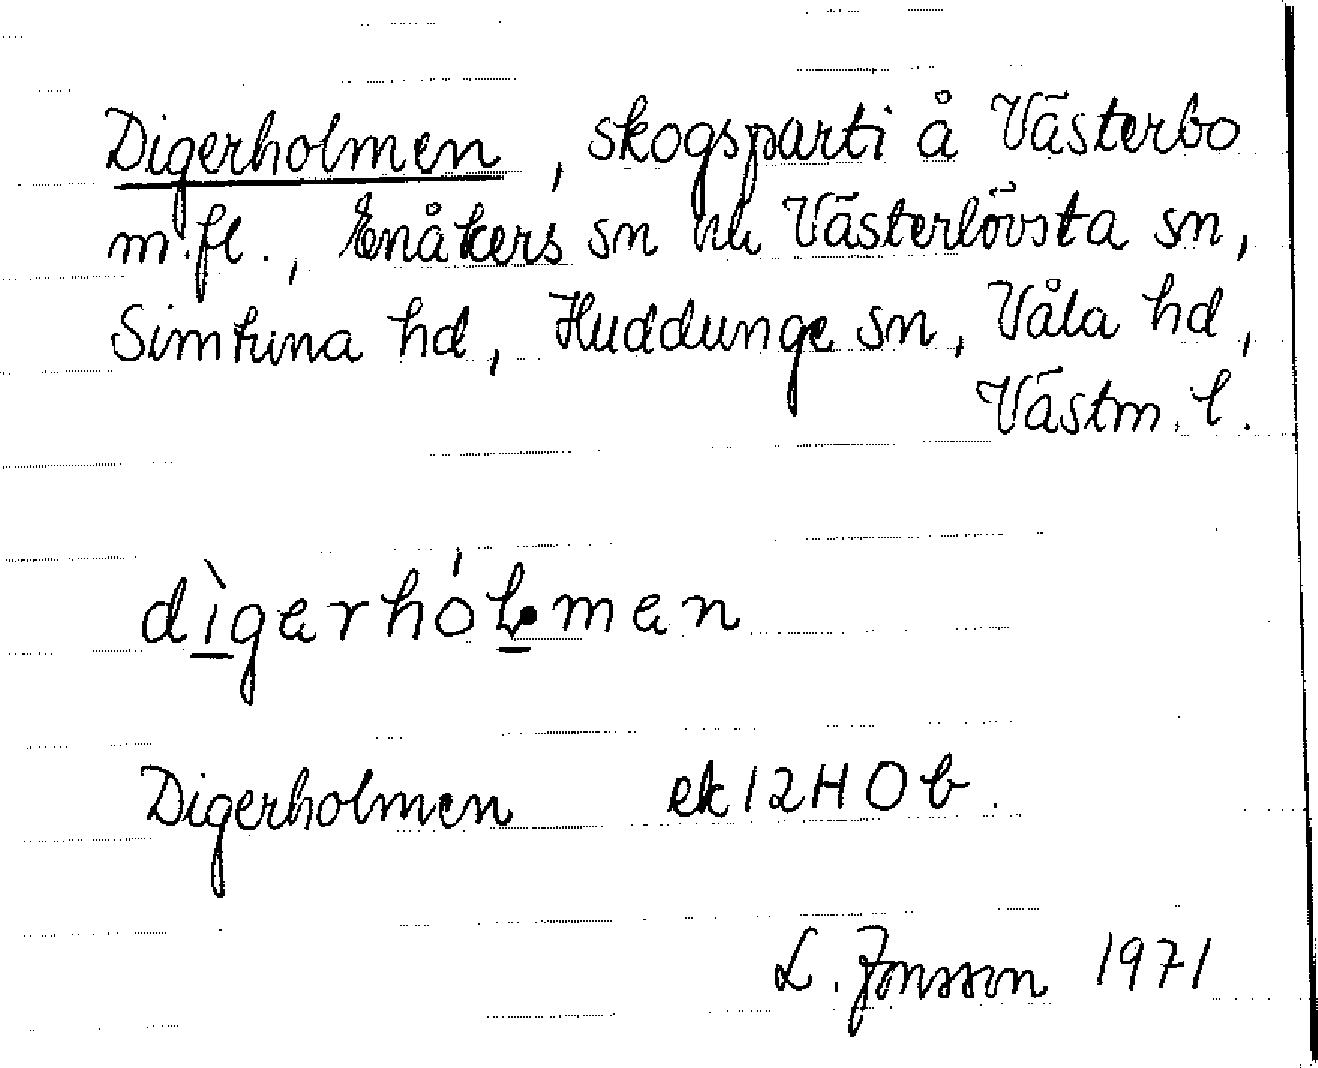 Digerholmen, skogsparti å Västerbo
m.fl., Enåkers sn hk Västerlövsta sn,
Simtuna hd, Huddunge sn, Våla hd,
Västm. l.
dìgerhól•men
Digerholmen ek 12H 0b.
L. Jonsson 1971